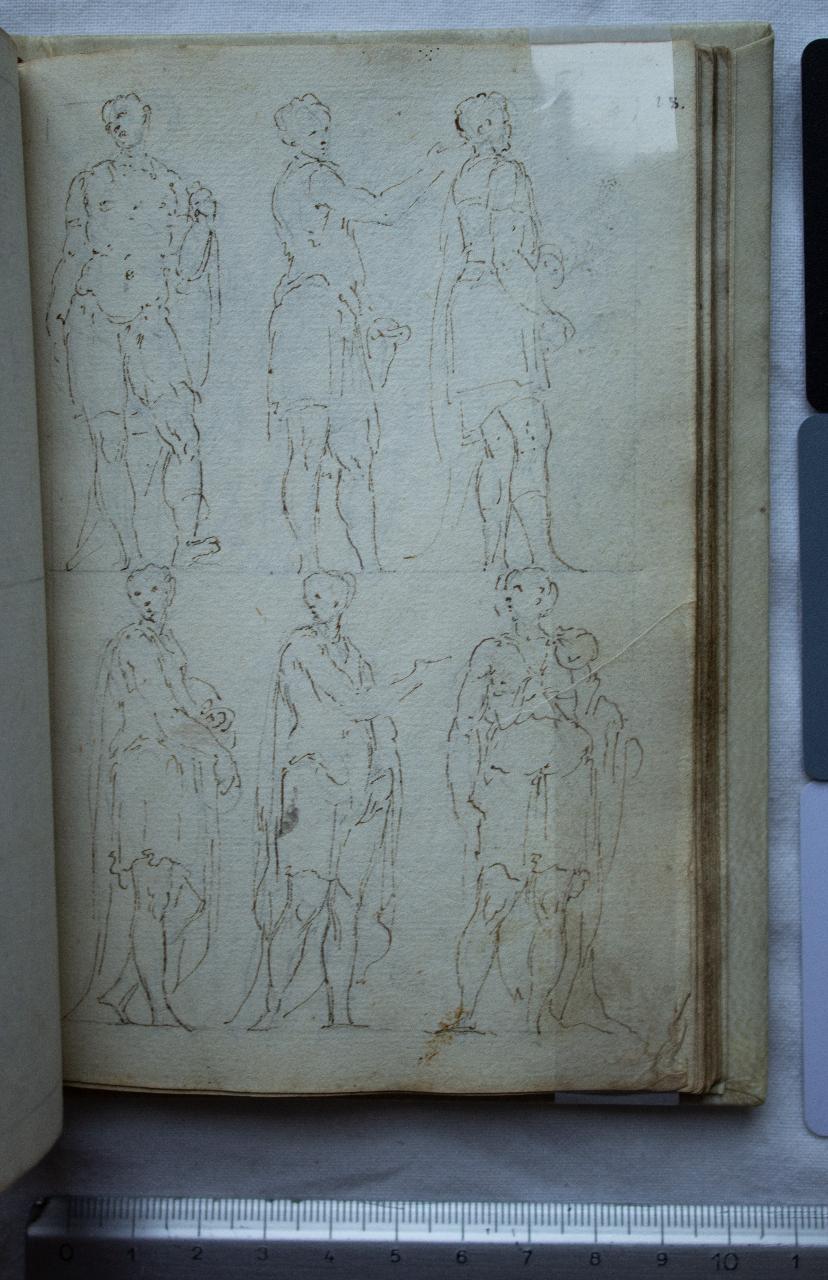 18.
0 1 2 3 4 5 6 7 8 9 10 1